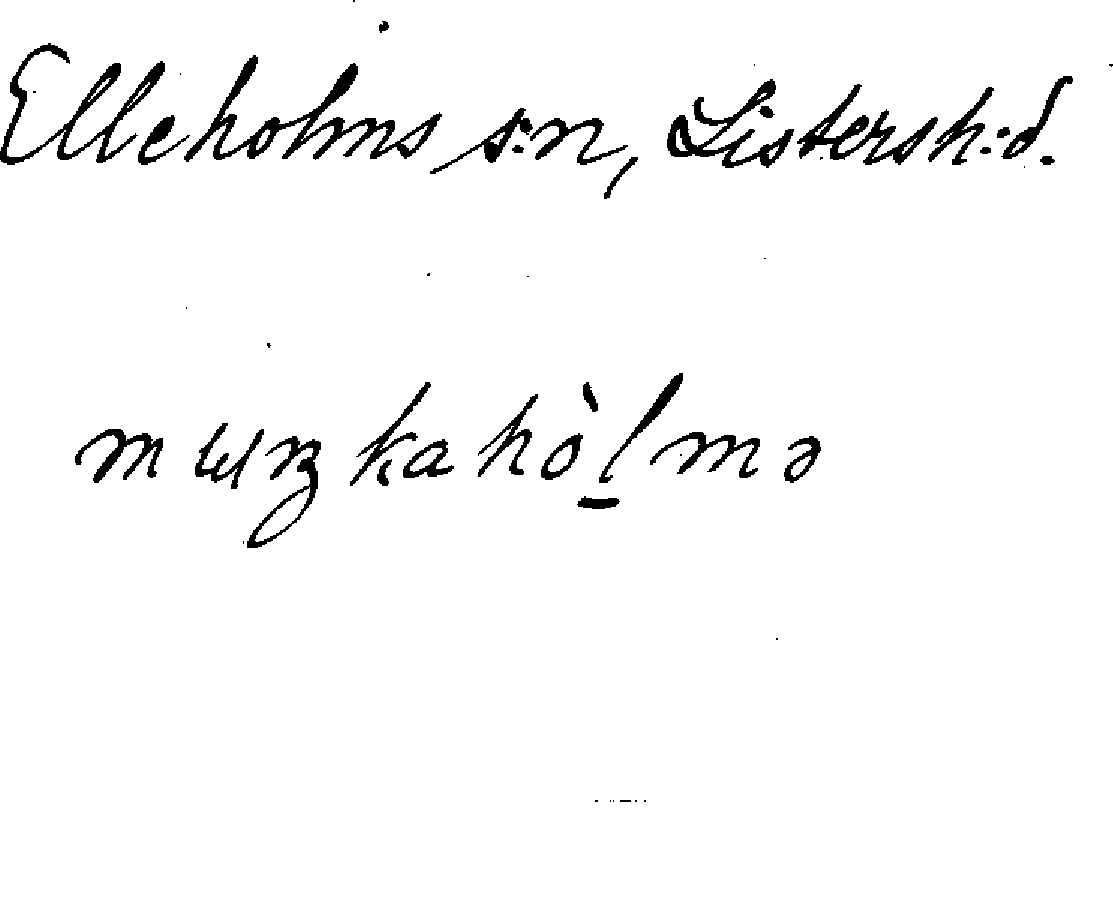 Elleholms s:n, Listersh:d.
mɯŋkahò̱lmə